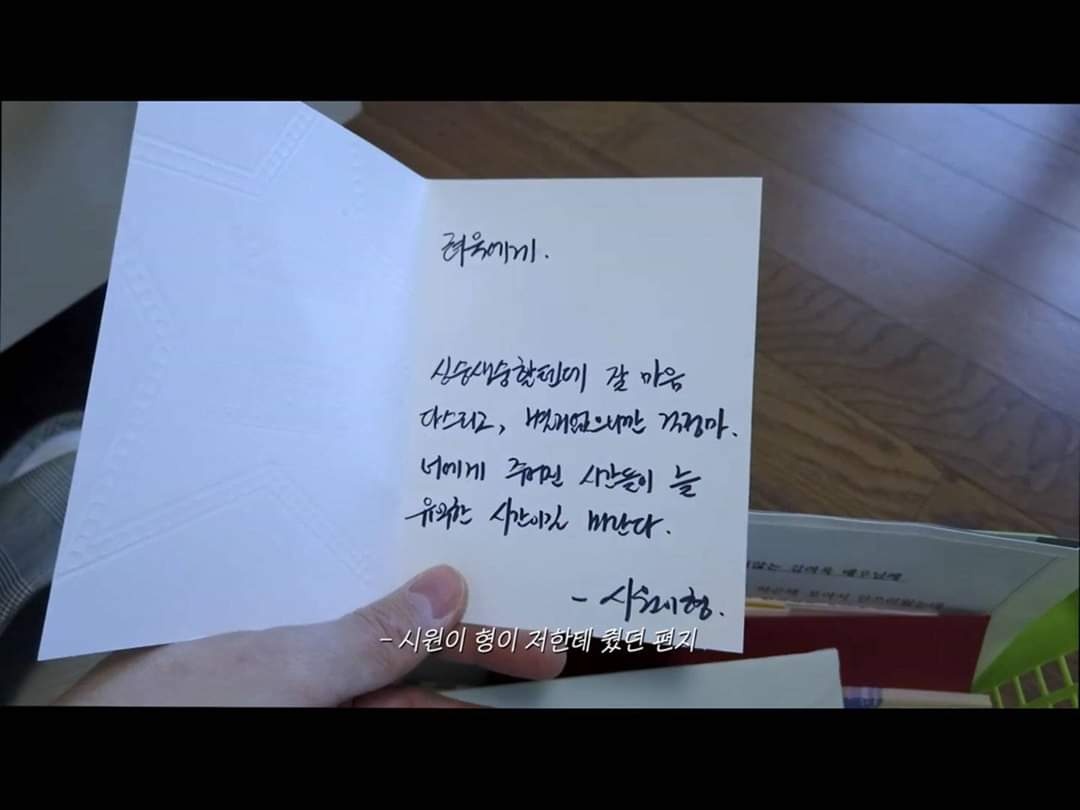 려욱에게.
싱숭생숭할텐데 잘 마음
다스리고, 별거없으니깐 걱정마.
너에게 주어진 시간들이 늘
유익한 시간이길 바란다.
- 시원이형.
- 시원이 형이 저한테 줬던 편지